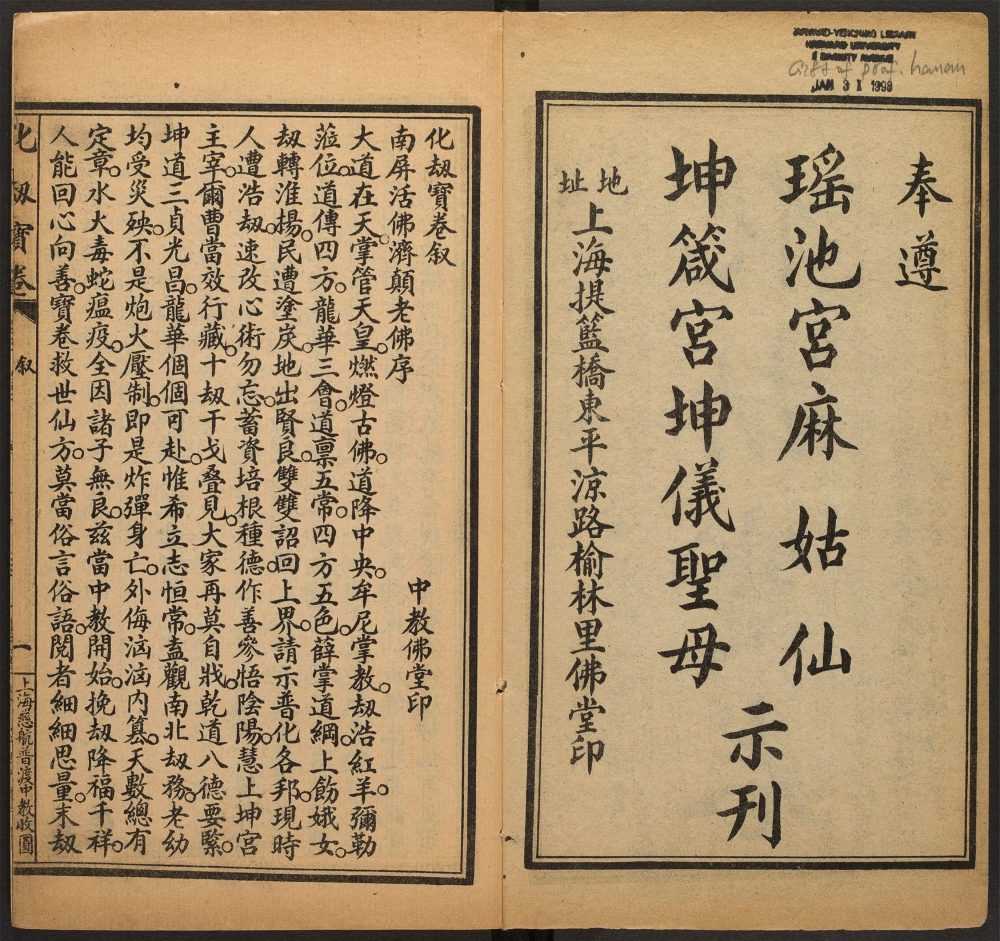 HARVARD-YENCHING LIBRARY
HARVARD UNIVERSITY
2 DIVINITY AVENUE
Gift of prof. hanan
JAN 31 1998
奉遵
瑤池宮麻姑仙
坤箴宮坤儀聖母
示刊
地址
上海提籃橋東平涼路榆林里佛堂印
化刼寶卷叙
南屏活佛濟顛老佛序
中教佛堂印
大道在天掌管天皇。燃燈古佛。道降中央。牟尼掌教。刼浩紅羊。彌勒
蒞位。道傳四方。龍華三會。道禀五常。四方五色。薛掌道綱。上飭娥女。
刼轉淮揚。民遭塗炭。地出賢良。雙雙詔回。上界請示。普化各邦。現時
人遭浩刼。速改心術勿忘。蓄資培根種德。作善參悟陰陽。慧上坤宮
主宰。爾曹當效行藏。十刼干戈叠見。大家再莫自戕。乾道八德要緊。
坤道三貞光昌。龍華個個可赴。惟希立志恒常。盍觀南北刼務。老幼
均受災殃。不是炮火壓制。即是炸彈身亡。外侮汹汹內篡。天數總有
定章。水火毒蛇瘟疫。全因諸子無良。兹當中教開始。挽刼降福千祥。
人能回心向善。寶卷救世仙方。莫當俗言俗語。閱者細細思量。末刼
化刼寶卷
叙
一
上海慈航普渡中教收圓